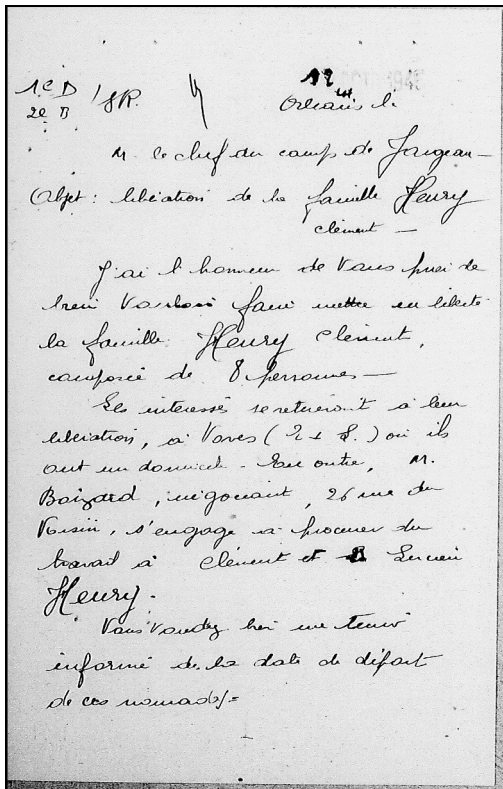 1e D / SR.
2e B
Orléans le
M. le chef du camp de Jargeau —
Objet : libération de la famille Henry
Clément —
J'ai l'honneur de vous prier de
bien vouloir faire mettre en liberté
la famille Henry Clément,
composée de 8 personnes —
Les intéressés se retireront à leur
libération, à Voves (E & L.) où ils
ont un domicile. En outre, M.
Boizard, négociant, 26 rue du
Voisin, s'engage à procurer du
travail à Clément et Lucien
Henry.
Vous voudrez bien me tenir
informé de la date de départ
de ces nomades. =